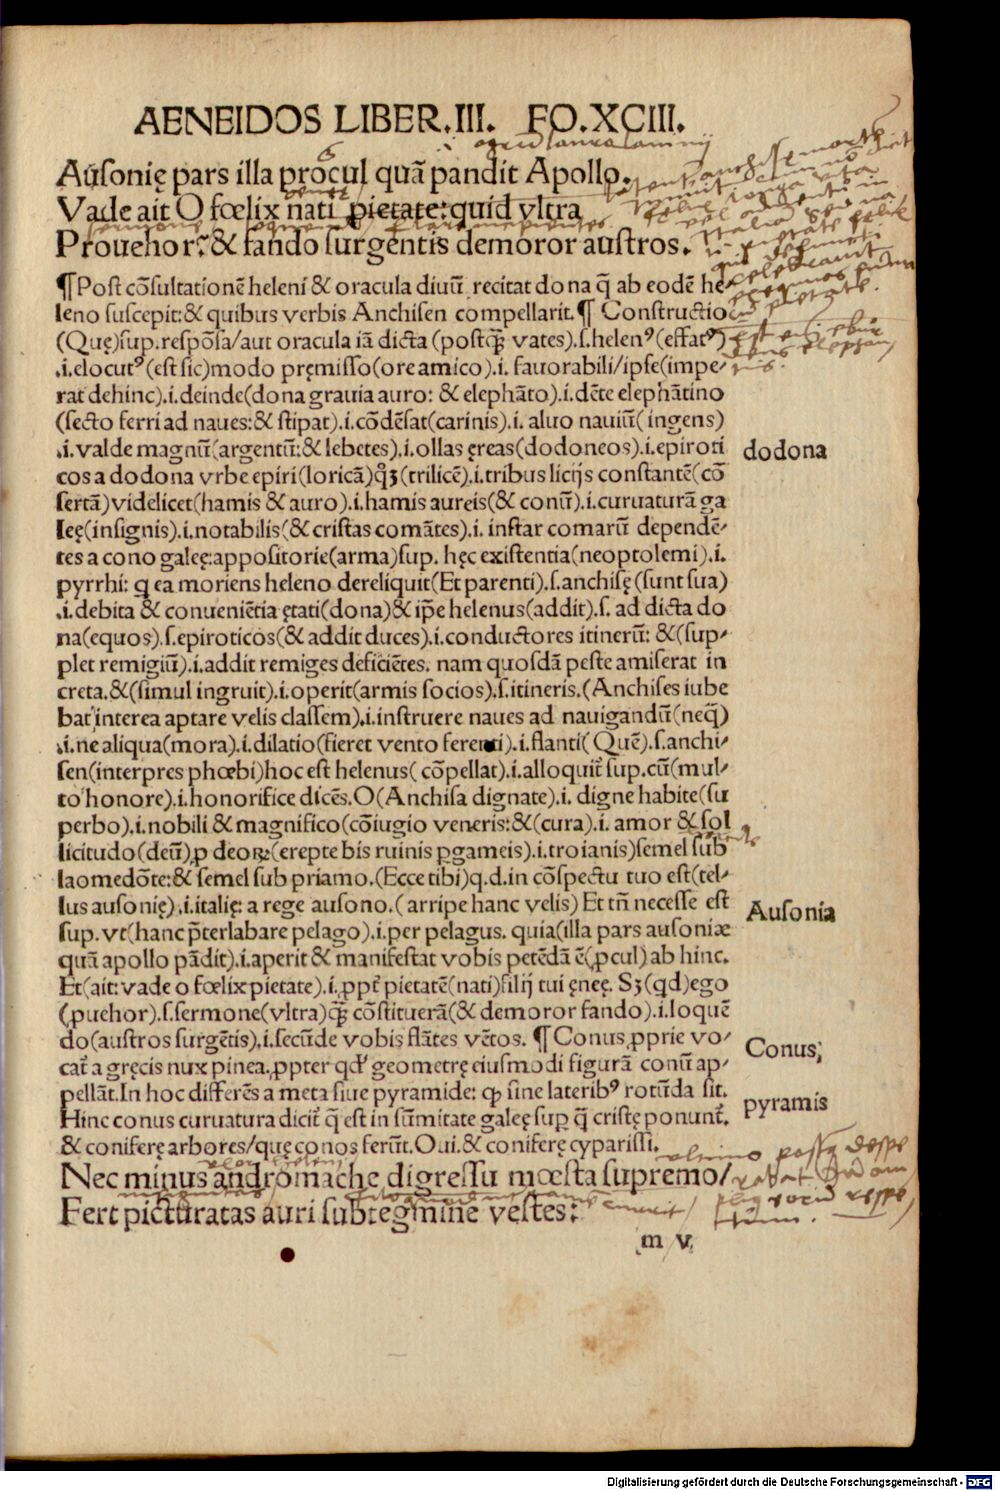 AENEIDOS LIBER.III. FO.XCIII.
Ausonię pars illa procul quã pandit Apollo.
Vade ait O fœlix nati pietate: quid vltra
Prouehor? & fando surgentis demoror austros.
¶ Post cõsultationẽ heleni & oracula diuũ recitat dona q̃ ab eodẽ he
leno suscepit: & quibus verbis Anchisen compellarit. ¶ Constructio
(Quę) sup. respõsa/aut oracula iã dicta (postq̃ vates).s.helenꝰ (effatꝰ)
.i.elocutꝰ (est sic) modo pręmisso (ore amico).i. fauorabili/ipse (impe/
rat dehinc).i.deinde (dona grauia auro: & elephãto).i.dẽte elephãtino
(secto ferri ad naues: & stipat).i.cõdẽsat (carinis).i. aluo nauiũ (ingens)
.i.valde magnũ (argentũ: & lebetes).i.ollas ęreas (dodoneos).i.epiroti
cos a dodona vrbe epiri (loricã) q̃ȝ (trilicẽ).i.tribus licijs constantẽ (cõ
sertã) videlicet (hamis & auro).i.hamis aureis (& conũ).i.curuaturã ga
leę (insignis).i.notabilis (& cristas comãtes).i. instar comarũ dependẽ/
tes a cono galeę: appositorie (arma) sup. hęc existentia (neoptolemi).i.
pyrrhi: q ea moriens heleno dereliquit (Et parenti).s.anchisę (sunt sua)
.i.debita & conueniẽtia ętati (dona) & ip̃e helenus (addit).s. ad dicta do
na (equos).s.epiroticos (& addit duces).i.conductores itinerũ: & (sup/
plet remigiũ).i.addit remiges deficiẽtes. nam quosdã peste amiserat in
creta. & (simul ingruit).i.operit (armis socios).s.itineris. (Anchises iube
bat interea aptare velis classem).i.instruere naues ad nauigandũ (neq̃)
.i.ne aliqua (mora).i.dilatio (fieret vento ferenti).i.flanti (Quẽ).s.anchi/
sen (interpres phœbi) hoc est helenus (cõpellat).i.alloquit̃ sup. cũ (mul/
to honore).i.honorifice dicẽs. O (Anchisa dignate).i. digne habite (su
perbo).i.nobili & magnifico (cõiugio veneris: & (cura).i. amor & sol
licitudo (deũ) ꝓ deoꝝ (erepte bis ruinis ꝑgameis).i.troianis) semel sub
laomedõte: & semel sub priamo. (Ecce tibi) q.d. in cõspectu tuo est (tel/
lus ausonię).i.italię: a rege ausono. (arripe hanc velis) Et tñ necesse est
sup. vt (hanc p̃terlabare pelago).i.per pelagus. quia (illa pars ausoniæ
quã apollo pãdit).i.aperit & manifestat vobis petẽdã ẽ (ꝓcul) ab hinc.
Et (ait: vade o fœlix pietate).i.ꝓpt̃ pietatẽ (nati) filij tui ęneę. Sȝ (qd) ego
(ꝓuehor).s.sermone (vltra) q̃ȝ cõstituerã (& demoror fando).i.loquẽ
do (austros surgẽtis).i.secũde vobis flãtes vẽtos. ¶ Conus ꝓprie vo/
cat̃ a gręcis nux pinea. ꝓpter qd̃ geometrę eiusmodi figurã conũ ap/
pellãt. In hoc differẽs a meta siue pyramide: ꝙ sine lateribꝰ rotũda sit.
Hinc conus curuatura dicit̃ q̃ est in sũmitate galeę sup q̃ cristę ponunt̃.
& coniferę arbores/quę conos ferũt. Oui. & coniferę cyparissi.
Nec minus andromache digressu mœsta supremo/
Fert picturatas auri subtegmine vestes:
m v
dodona
Ausonia
Conus;
pyramis
Digitalisierung gefördert durch die Deutsche Forschungsgemeinschaft - DFG